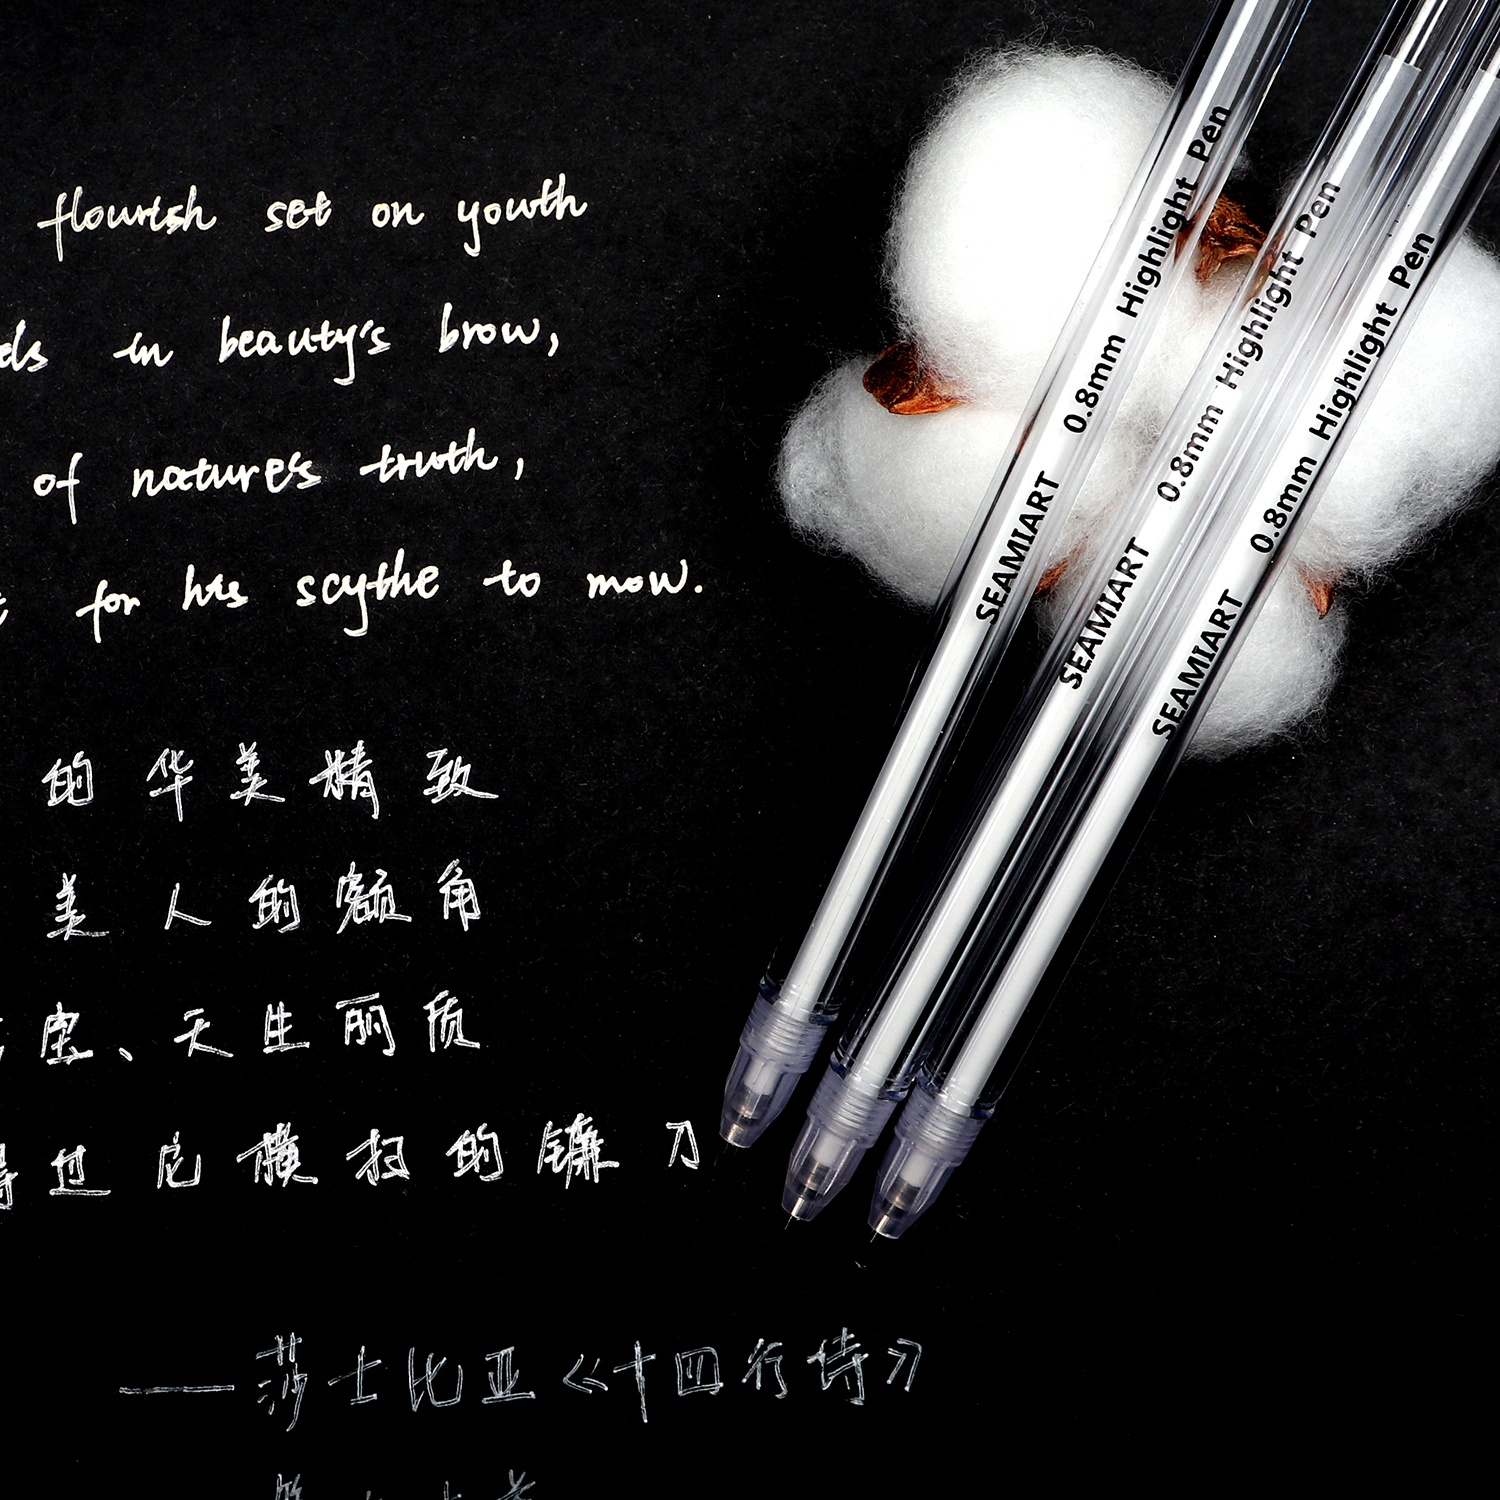 flourish set on youth
ds in beauty's brow,
of nature's truth,
for his scythe to mow.
的华美精致
美人的额角
宝、天生丽质
得过它横扫的镰刀
——莎士比亚《十四行诗》
SEAMIART 0.8mm Highlight Pen
SEAMIART 0.8mm Highlight Pen
SEAMIART 0.8mm Highlight Pen